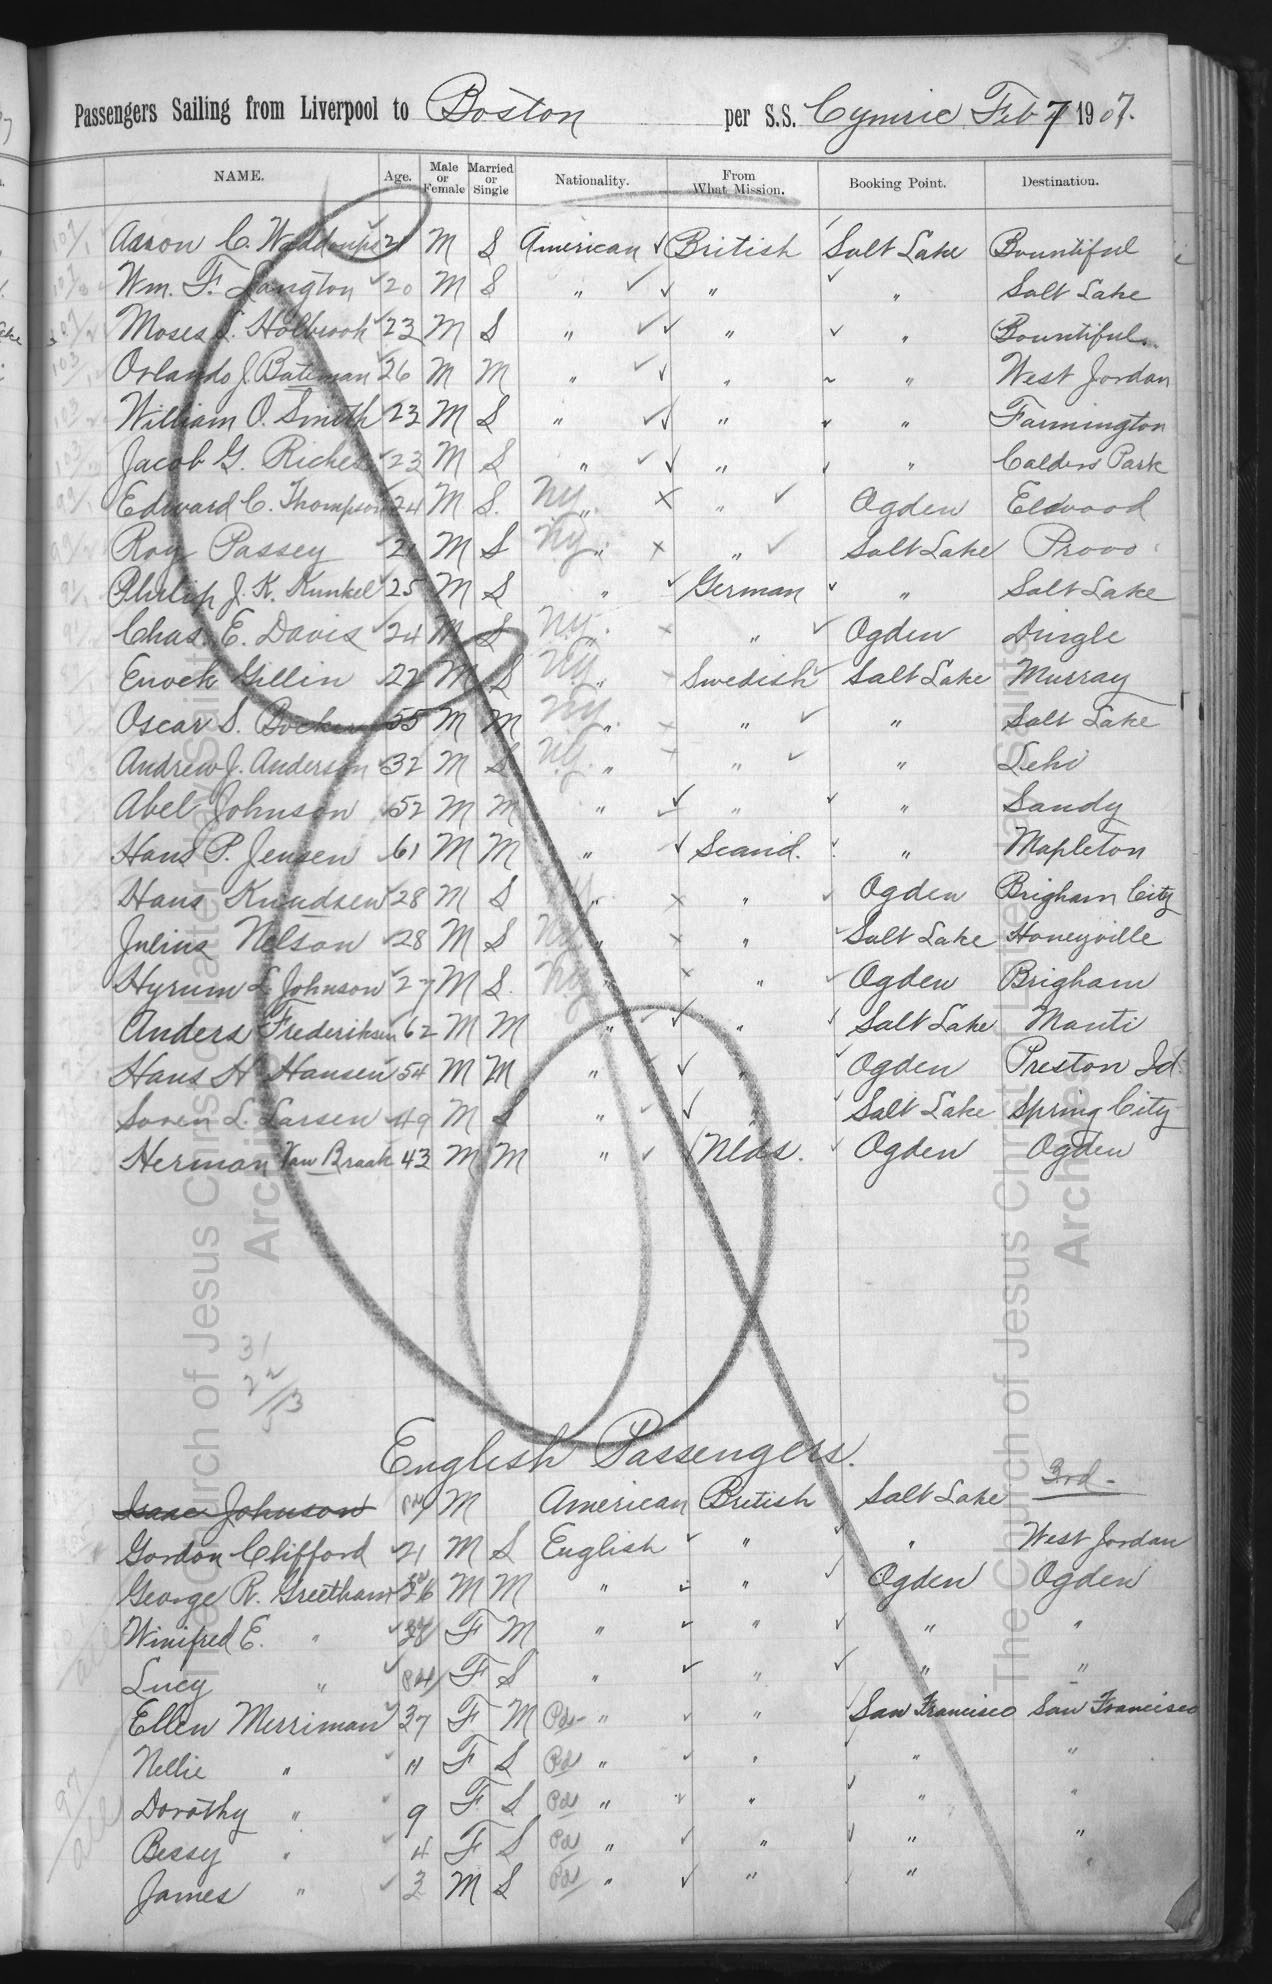 Passengers Sailing from Liverpool to Boston per S.S. Cymric Feb 7 1907.
NAME. Age. Male or Female Married or Single Nationality. From What Mission. Booking Point. Destination.
Aaron C. Waddoups 21 M S American British Salt Lake Bountiful
Wm. F. Langton 20 M S " " " Salt Lake
Moses L. Holbrook 23 M S " " " Bountiful
Orlando J. Bateman 26 M M " " " West Jordan
William O. Smith 23 M S " " " Farmington
Jacob G. Riches 23 M S " " " Calders Park
Edward C. Thompson 24 M S. N.Y. " " Ogden Elwood
Roy Passey 21 M S N.Y. " " Salt Lake Provo
Philip J. K. Kunkel 25 M S " German " Salt Lake
Chas. E. Davis 24 M S N.Y. " " Ogden Dingle
Enoch Gillin 22 M S N.Y. " Swedish Salt Lake Murray
Oscar S. 55 M M N.Y. " " " Salt Lake
Andrew J. Anderson 32 M S N.Y. " " " Lehi
Abel Johnson 52 M M " " " Sandy
Hans P. Jensen 61 M M " Scand. " Mapleton
Hans Knudsen 28 M S " " Ogden Brigham City
Julius Nelson 28 M S N.Y. " " Salt Lake Honeyville
Hyrum L. Johnson 27 M S. N.Y. " " Ogden Brigham
Anders Frederiksen 62 M M " " Salt Lake Manti
Hans H Hansen 54 M M " " Ogden Preston Id.
Soren L. Larsen 49 M S " " Salt Lake Spring City
Herman Van Braak 43 M M " Nlds. Ogden Ogden
31
22
13
English Passengers.
Isaac Johnson M American British Salt Lake 3rd -
Gordon Clifford 21 M S English " " West Jordan
George R. Greetham 26 M M " " Ogden Ogden
Winifred E. " F M " " " "
Lucy " F S " " " "
Ellen Merriman 37 F M Pd - " " San Francisco San Francisco
Nellie " 11 F S Pd " " " "
Dorothy " 9 F S Pd " " " "
Bessy " 4 F S Pd " " " "
James " 3 M S Pd " " "
97
all
The Church of Jesus Christ of Latter-day Saints
Archives
The Church of Jesus Christ of Latter-day Saints
Archives